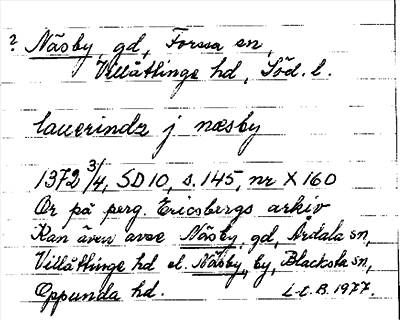 ? Näsby, gd, Forssa sn,
Villåttinge hd, Söd. l.
lauerindz j næsby
1372 3/4, SD 10, s. 145, nr X 160
Or på perg. Ericsbergs arkiv
Kan även avse Näsby, gd, Årdala sn,
Villåttinge hd el. Näsby, by, Blacksta sn,
Oppunda hd. L-E.B. 1977.